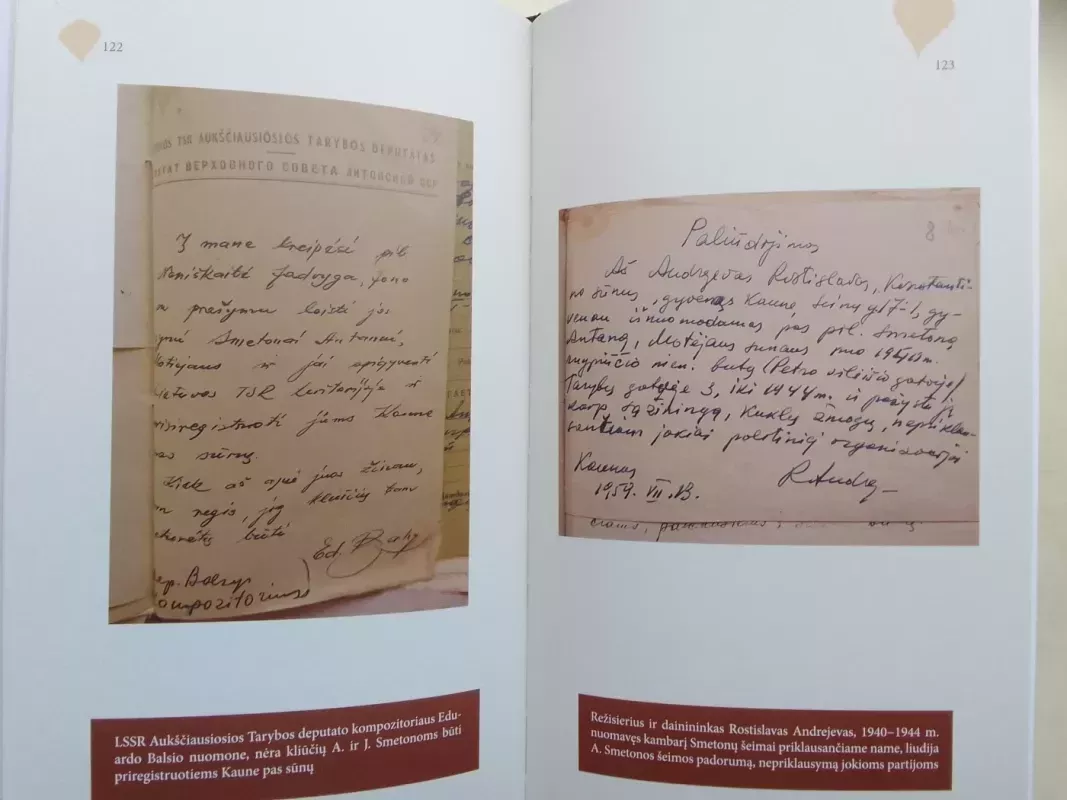 122
TSR AUKŠČIAUSIOSIOS TARYBOS DEPUTATAS
ВЕРХОВНОГО СОВЕТА ЛИТОВСКОЙ ССР
Į mane kreipėsi pil.
Jadvyga, Jono
prašymu leisti jai
Smetonai Antanui,
Motiejaus ir jai apsigyventi
Lietuvos TSR teritorijoje ir
prisiregistruoti jiems Kaune
pas sūnų.
Kiek aš apie juos žinau,
regis, jog kliūčių tam
būti
Ed. Balsys
dep. Balsys
kompozitorius
LSSR Aukščiausiosios Tarybos deputato kompozitoriaus Edu-
ardo Balsio nuomone, nėra kliūčių A. ir J. Smetonoms būti
priregistruotiems Kaune pas sūnų
123
8
Paliudijimas
Aš Andrejevas Rostislavas, Konstanti-
no sūnus, gyvenąs Kaune, 17-1, gy-
venau išnuomodamas pas pil. Smetoną
Antaną, Motėjaus sunaus nuo 1940 m.
rugpiučio mėn. butą (Petro Vileišio gatvėje)
Tarybų gatvėje 3, iki 1944 m. ir pažystu jį
kaip sąžiningą, kuklų žmogų, nepriklau-
santiam jokiai politiniai organizacijai
Kaunas
1959. VII. 13.
R Andrej
LSSR
Režisierius ir dainininkas Rostislavas Andrejevas, 1940–1944 m.
nuomavęs kambarį Smetonų šeimai priklausančiame name, liudija
A. Smetonos šeimos padorumą, nepriklausymą jokioms partijoms